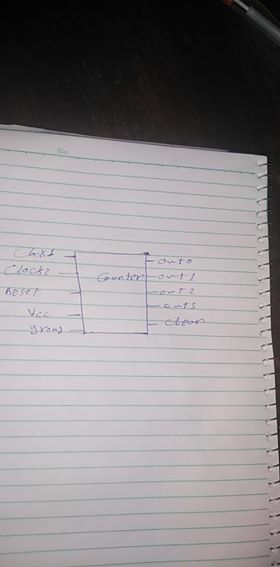 No
Clock1
Clock2
Reset
Vcc
grond
Counter
out0
out1
out2
out3